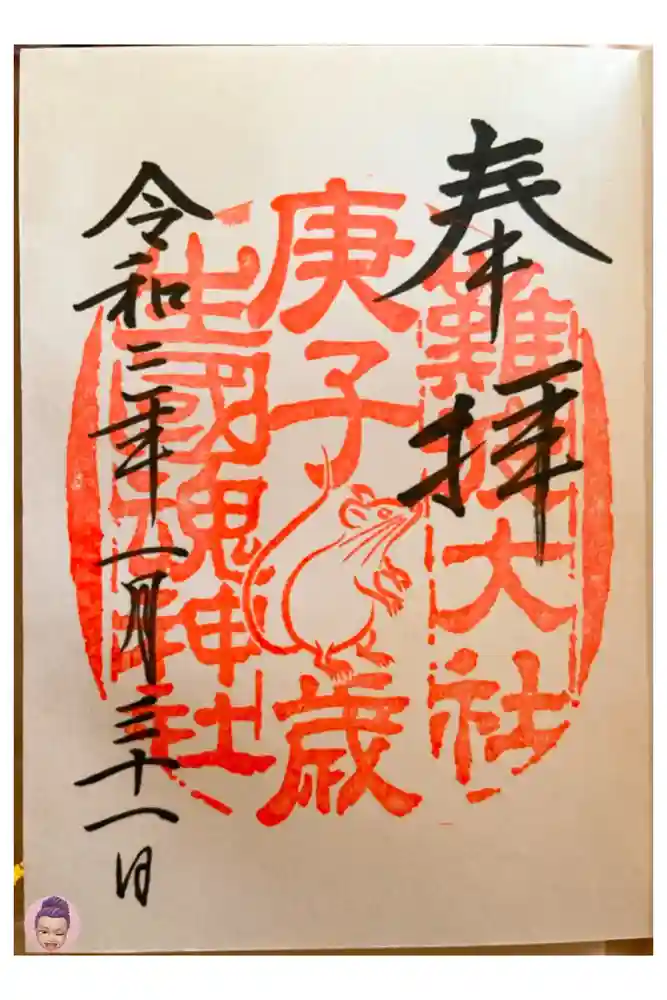 奉拝
難波大社
庚子歳
生國魂神社
令和三年一月三十一日